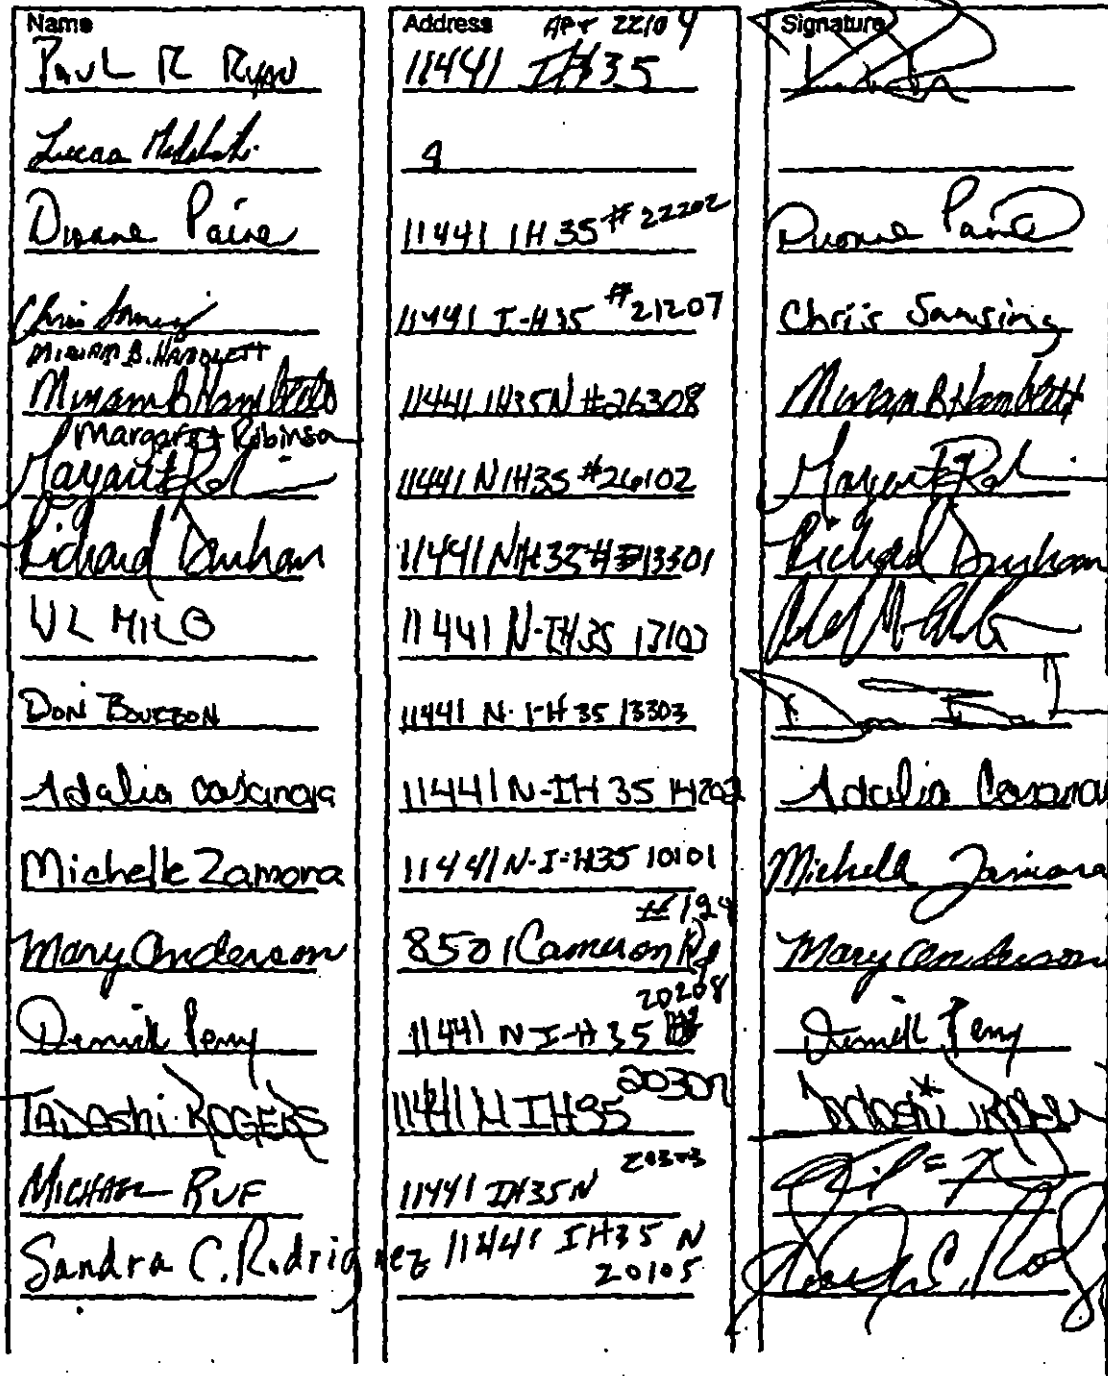 Name Address Signature
APT 22104
Paul R Ryan 11441 IH35
Lucas 9
Duane Paire 11441 IH 35 #22202 Duane Paire
Chris 11441 I-H35 #21207 Chris Samsing
MIRIAM B. HAMBLETT
Miriam B Hamblett 11441 IH35N #26308 Miriam B Hamblett
Margaret Robinson
Margaret 11441 N IH35 #26102 Margaret
Richard Dunham 11441 N IH35 #13301 Richard Dunham
VL MILO 11441 N-IH35 13103
DON BOURBON 11441 N-I-H 35 13303
Adalia Casanova 11441 N-IH 35 14202 Adalia Casanova
Michelle Zamora 11441 N-I-H35 10101 Michelle Zamora
#124
Mary Anderson 8501 Cameron Rd Mary Anderson
20208
Derrick Perry 11441 N I-H 35 Derrick Perry
TADASHI ROGERS 11441 N IH35 Tadashi Rogers
20303
MICHAEL RUF 11441 IH35N
Sandra C. Rodriguez 11441 IH35 N
20105